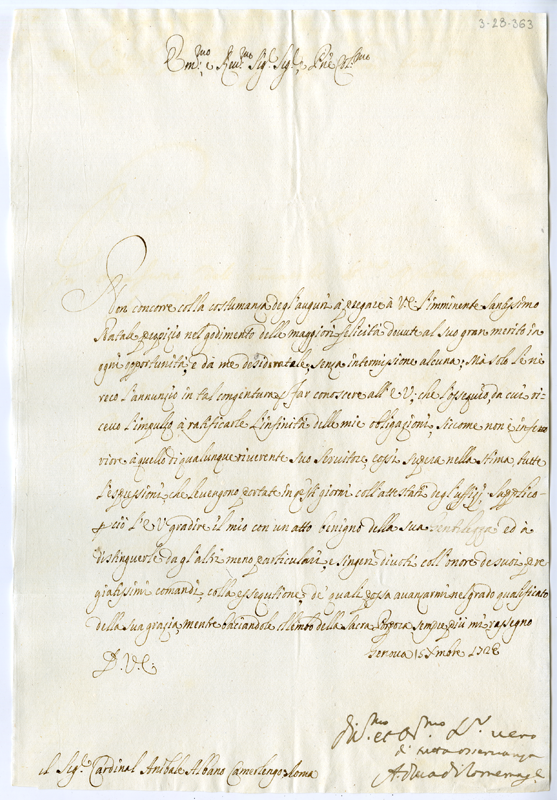 3-28-363
Em.mo e Rev.mo Sig.r Sig.r Pne Col.mo
Non concorre colla costumanza degl'auguri à pregare à V.E. l'imminente Santissimo
Natale propizio nel godimento delle maggiori felicità dovute al suo gran merito in
ogni opportunità, e da me desideratale, senza intermissione alcuna; Ma solo le ni
reco l'annunzio in tal congiuntura p far conoscere all' E.V: che l'ossequio, da cui ri=
cevo l'impulso à ratificarle l'infinità delle mie obligazioni, siccome non è infe
riore à quello di qualunque riverente suo servitore, cossì supera nella stima, tutte
l'espressioni, che le vengono portate in questi giorni coll'attestati degl'uffizij. Supplico
p ciò l'E.V. gradire il mio con un atto benigno della sua gentilezza ed à
distinguerlo da gl'altri meno particolari, e singeri divoti coll'onore de suoi pre
giatissimi comandi, colla essequtione de quali possa avansarmi nel grado qualificato
della sua grazia, mentre baciandole il lembo della Sacra Porpora sempre più mi rassegno
D. V. E.
Genova 15 Xmbre 1728
Div.mo et Ob.mo Se.r vero
di tutta osservanza
il Sig.r Cardinal Anibale Albano Camerlengo Roma